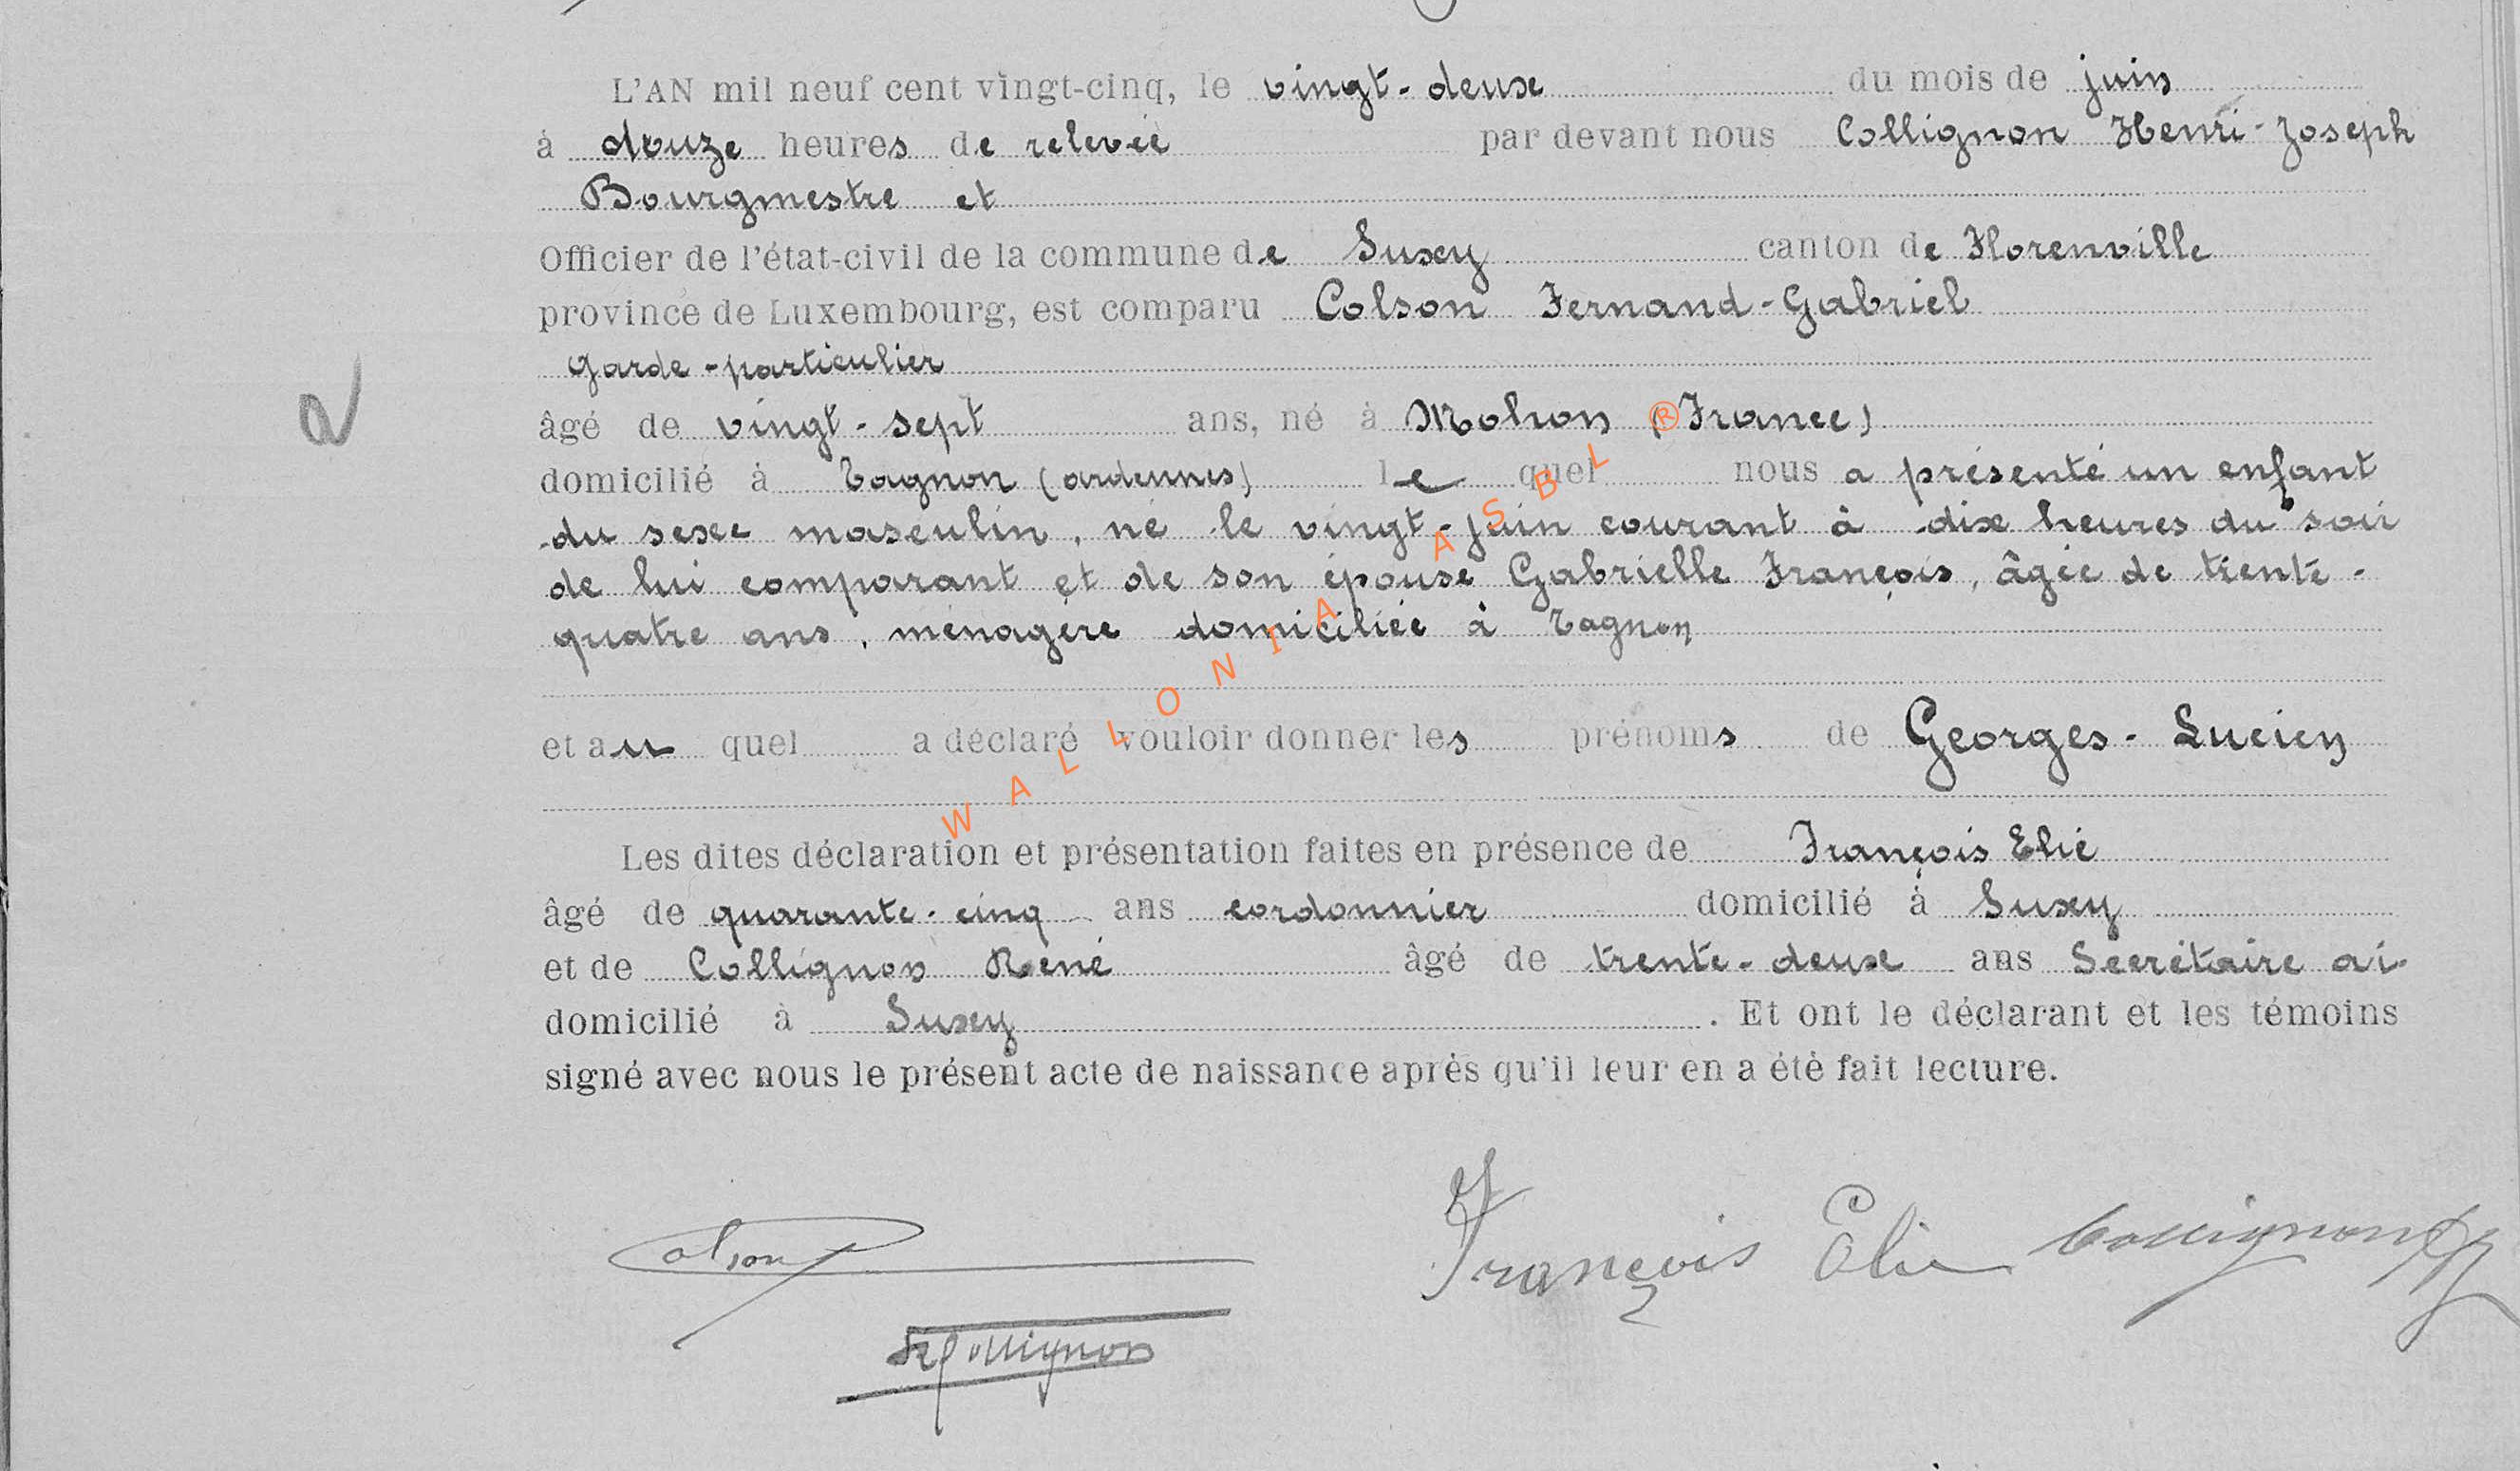 L'AN mil neuf cent vingt-cinq, le vingt-deux du mois de juin
à douze heures de relevée par devant nous Collignon Henri-Joseph
Bourgmestre et
Officier de l'état-civil de la commune de Suxy canton de Florenville
province de Luxembourg, est comparu Colson Fernand-Gabriel
Garde-particulier
âgé de vingt-sept ans, né à Mohon (France)
domicilié à Tagnon (ardennes) le quel nous a présenté un enfant
du sexe masculin, né le vingt-juin courant à dix heures du soir
de lui comparant et de son épouse Gabrielle François, âgée de trente-
quatre ans, ménagère domiciliée à Tagnon
et au quel a déclaré vouloir donner les prénoms de Georges-Lucien
Les dites déclaration et présentation faites en présence de François Elie
âgé de quarante-cinq ans cordonnier domicilié à Suxy
et de Collignon René âgé de trente-deux ans Secrétaire ai.
domicilié à Suxy. Et ont le déclarant et les témoins
signé avec nous le présent acte de naissance après qu'il leur en a été fait lecture.
Colson François Elie Collignon
Collignon
WALLONIA ASBL ®